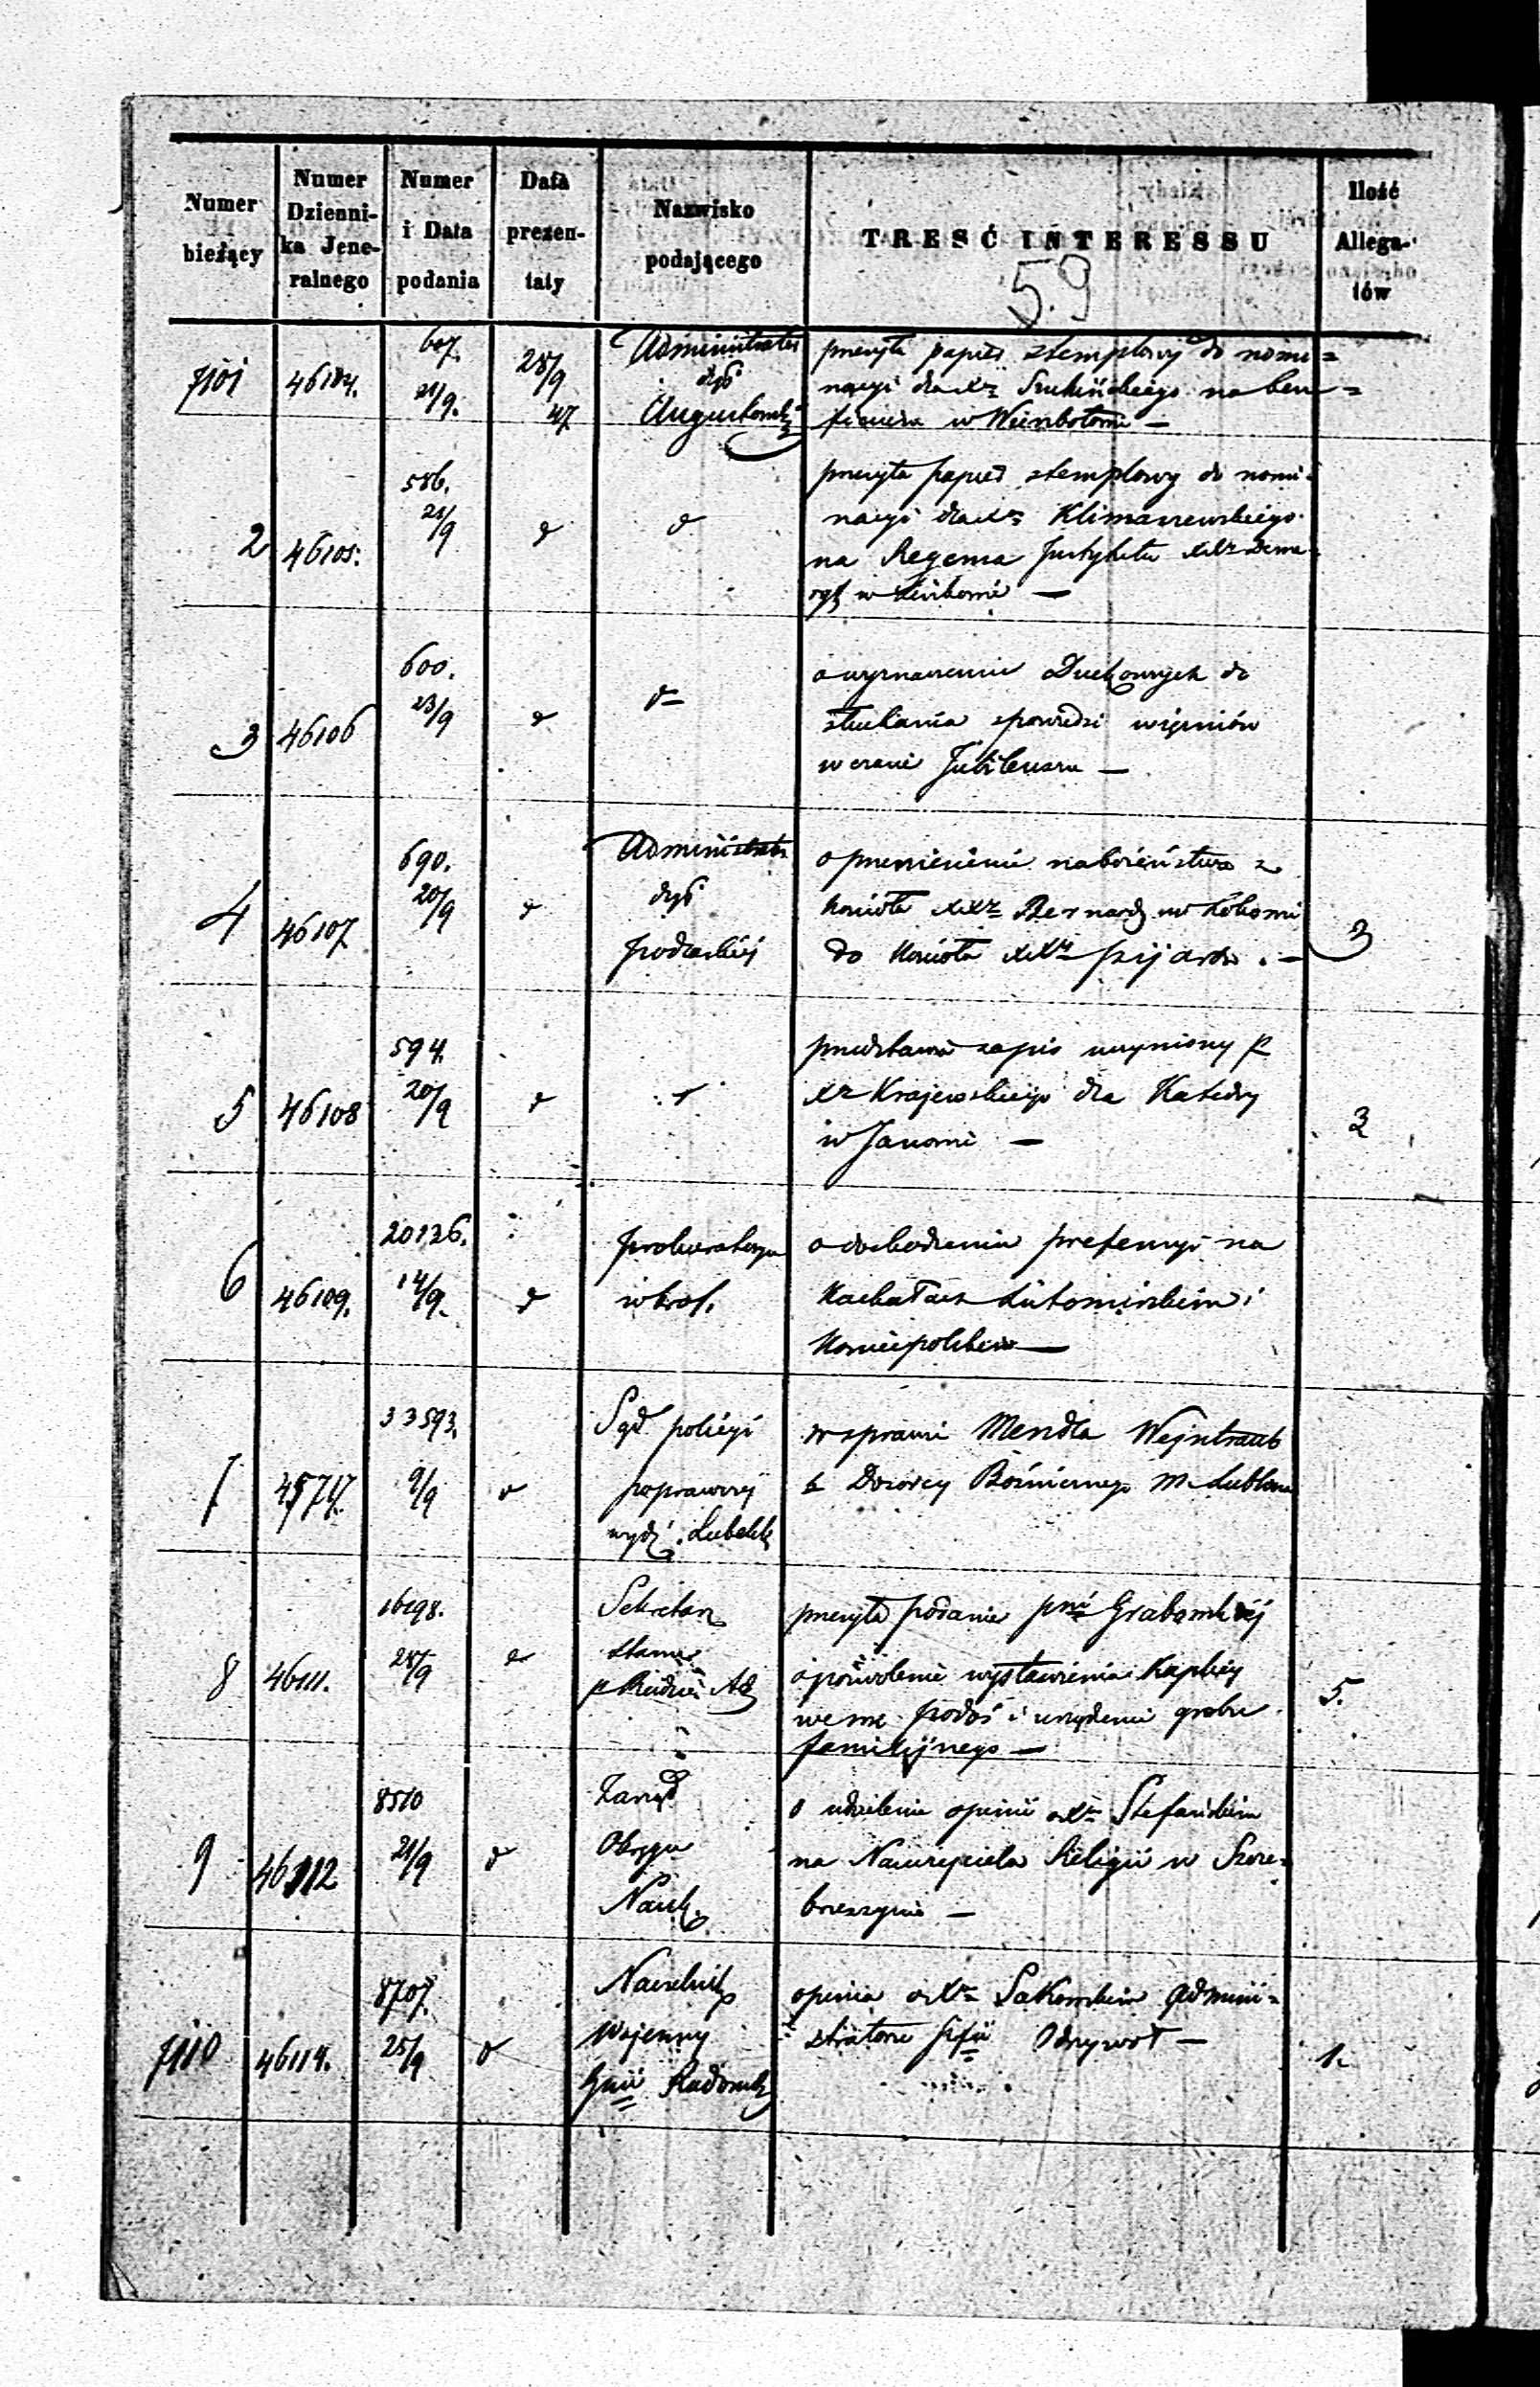 Numer bieżący
Numer Dzienni- ka Jene- ralnego
Numer i Data podania
Data prezen- taty
Nazwisko podającego
TREŚĆ INTERESSU
Ilość Allega- tów
59
7101 46104. 607. 21/9. 28/9 47
Administrator
dyć
Augustowsk
przesyła papier stemplowy do nomi=
nacyi dla Xa na bene=
ficiera w
2 46105. 586. 21/9 d d
przesyła papier stemplowy do nomi-
nacyi dla Xa Klimaszewskiego
na Regensa Instytutu XXz Deme-
ryt w —
3 46106 600. 23/9 d d
o wyznaczenie Duchownych do
słuchania spowiedzi więźniów
w czasie Jubileuszu —
4 46107 690. 20/9 d
Administrator
dyć
podlaskiej
o przeniesienie nabożeństwa z
kościoła XXz Bernard w
do kościoła XXz pijarów . —
3
5 46108 594. 20/9 d
przedstawia zapis uczyniony p
Xz Krajewskiego dla Katedry
w Janowie —
3
6 46109. 20136. 14/9. d
prokuratorya
w Król.
o dochodzenie pretensyi na
Kahałach Lutomirskim i
Koniecpolskim —
7 33593. 9/9 d
Sąd policyi
poprawczej
wydź. Lubelsk
w sprawie Mendla Wejntraub
b Dozorcy Bóżnicznego m. Lublina
8 46111. 16198. 28/9 d
Sekretarz
Stanu
p Radzie Ad
przesyła podanie pni Grabowskiej
o pozwolenie wystawienia Kaplicy
we wsi i urządzenie grobu
familijnego —
5.
9 46112 8510 21/9 d
Zarząd
Okręgu
Nauk.
o udzielenie opinii o Xa Stefańskim
na Nauczyciela Religii w Szcze-
brzeszynie —
7110 46114. 8707. 25/9 d
Naczelnik
Wojenny
Gnii Radomsk
opinia o Xa Sakowskim Admini=
stratorze pfii Odrzywół —
1.